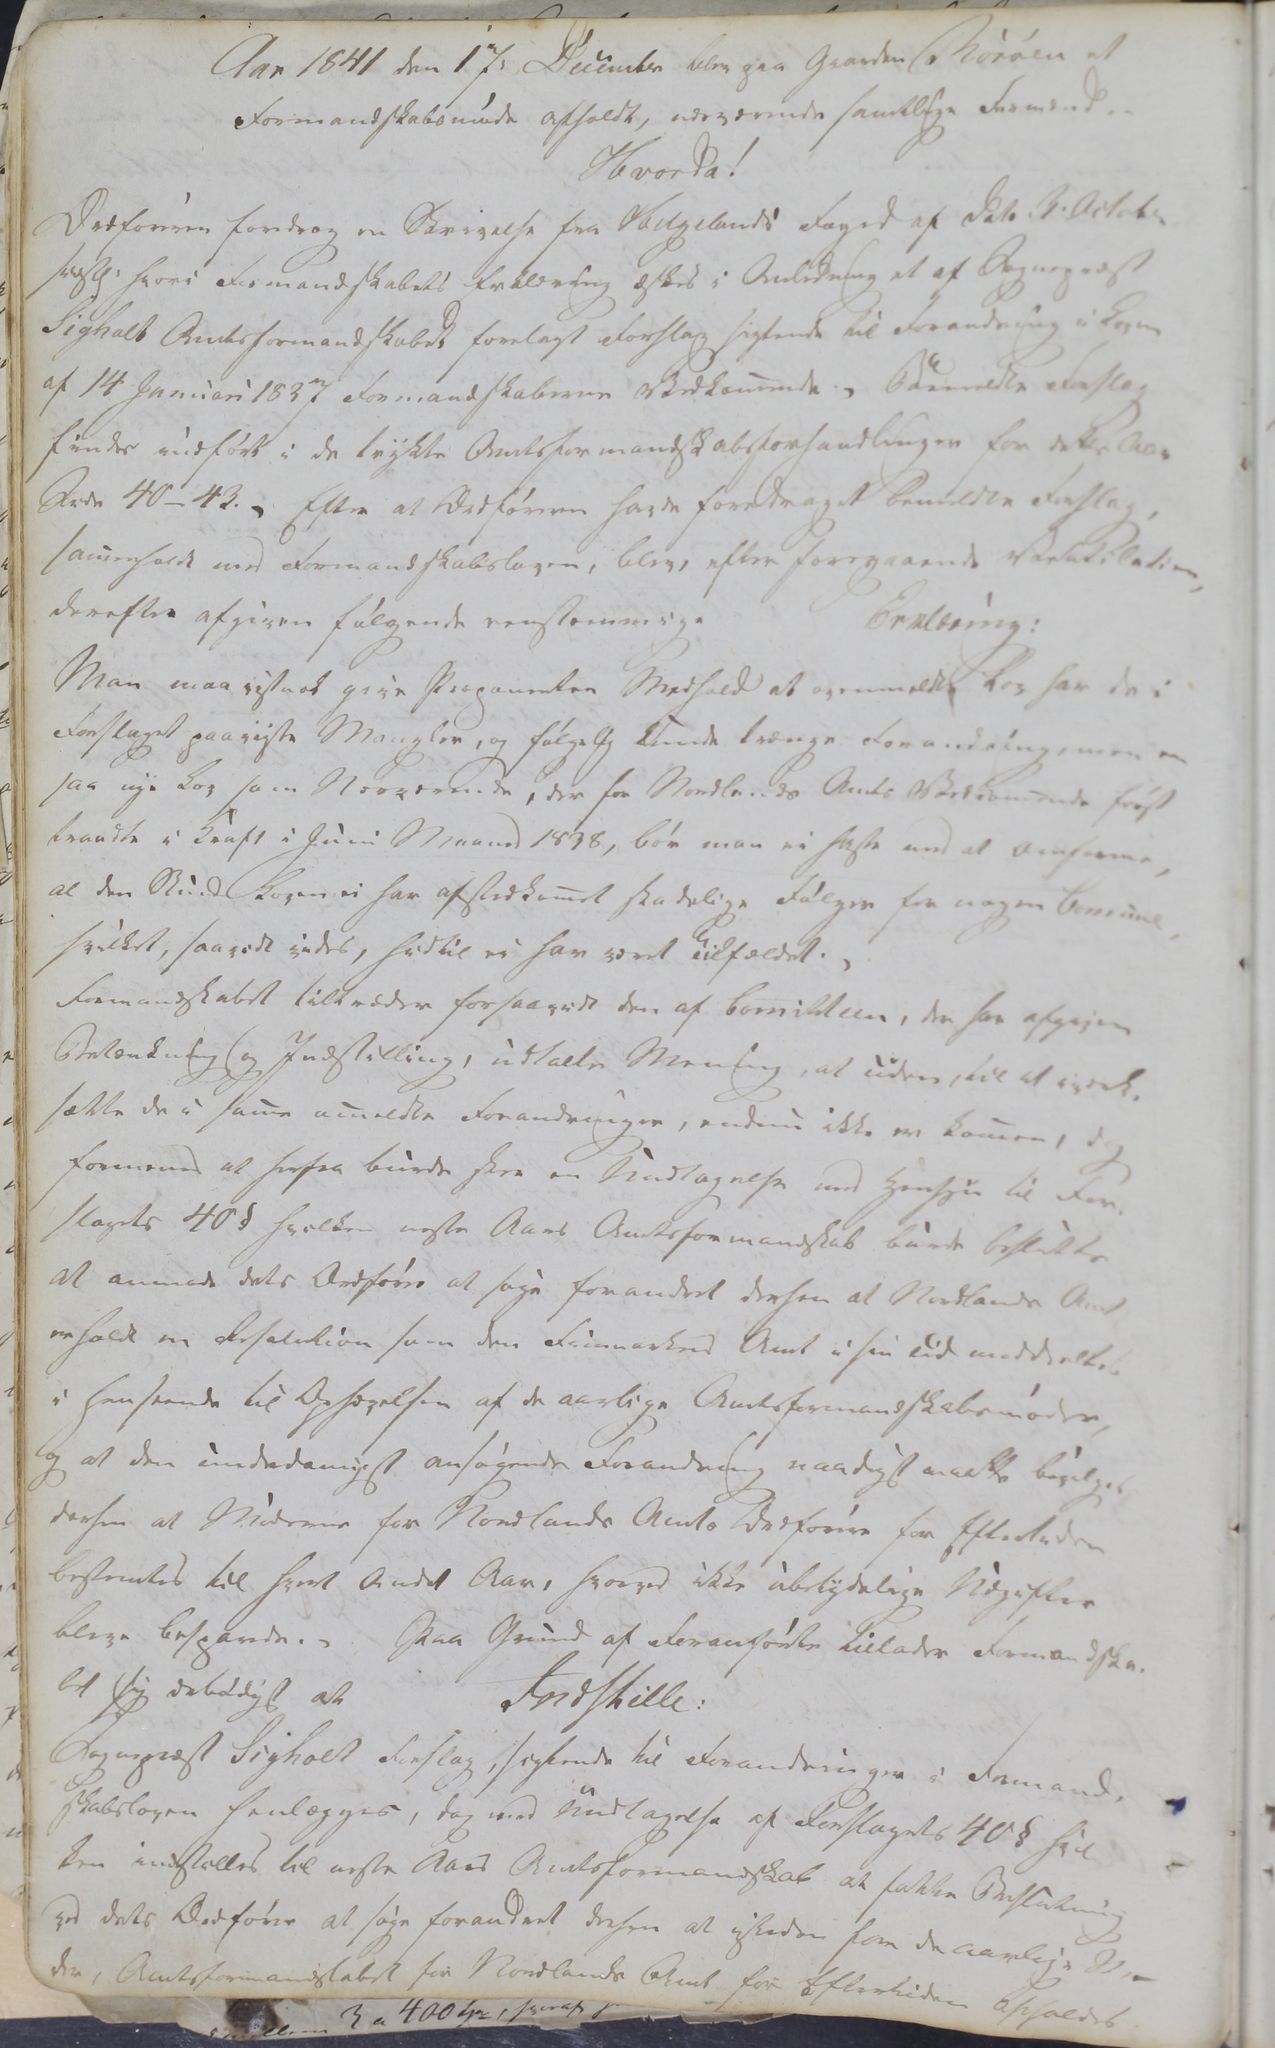 Aar 1841 den 17 December blev paa Gaarden Röröen et
Formandskabsmöde afholdt, nærværende samtlige Formænd.
Hvorda!
Ordföreren foredrog en Skrivelse fra Helgelands Foged af Dato 3 October
sidstl. hvori Formandskabets Erklæring æskes i Anledning et af Sognepræst
Sigholt Amtsformandskabet forelagt Forslag sigtende til Forandring i Loven
af 14 Januari 1837 Formandskaberne Vedkommende. Bemeldte Forslag
findes indfört i de trykte Amtsformandskabsforhandlinger for dette Aar
Side 40-43. Efter at Ordföreren havde foredraget bemeldte Forslag,
sammenholdt med Formandskabsloven, blev, efter foregaaende Ventilation,
derefter afgiven fölgende eenstemmige Erklæring:
Man maa vistnok give Proponenten Medhold at ovenmeldte Lov har de i
Forslaget paaviste Mangler, og fölgelig kunde trænge Forandring, men en
saa nye Lov som Nærværende, der for Nordlands Amts Vedkommende först
traadte i Kraft i Juni Maaned 1838, bör man ei haste med at omforme,
al den Stund Loven ei har afstedkommet skadelige Fölger for nogen Comune,
hvilket, saavidt vides, hidtil ei har været Tilfældet.
Formandskabet tiltræder forsaavidt den af Comitteen, der har afgiven
Betænkning og Indstilling, udtalte Mening, at Tiden, til at iværk-
sætte de i samme anmeldte Forandringer, endnu ikke er kommen, dog
formenes at herfra burde skee en Undtagelse med Hensyn til For-
slagets 40 § hvilken næste Aars Amtsformandskab burde beslutte
at anmode dets Ordförer at söge forandret derhen at Nordlands Amt
erholdt en Resolution som den Finmarkens Amt i sin Tid meddeeltes
i Henseende til Ophævelsen af de aarlige Amtsformandskabsmöder,
og at den underdanigst ansögende Forandring naadigst maatte bevilges
derhen at Möderne for Nordlands Amts Ordförere for Eftertiden
bestemtes til hvert andet Aar, hvorved ikke ubetydelige Udgifter
bleve besparede. Paa Grund af Foranförte tillader Formandska-
bet sig ærbödigst at Indstille:
Sognepræst Sigholt Forslag, sigtende til Forandringer i Formand-
skabsloven henlægges, dog med Undtagelse af Forslagets 40 § hvil
ken indstilles til næste Aars Amtsformandskab at fatte Beslutning
ved dets Ordförer at söge forandret derhen at istedenfor de aarlige Mö-
der, Amtsformandskabet for Nordlands Amt for Eftertiden afholdes
3 a 400